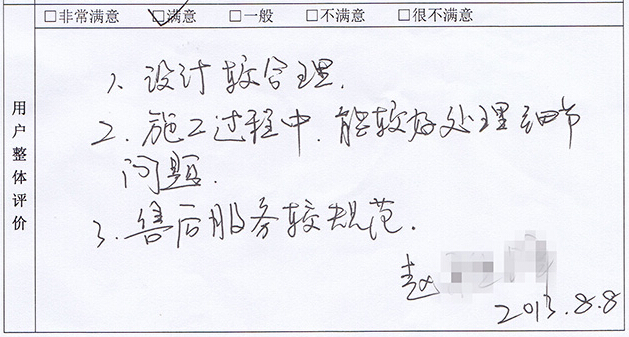 □非常满意 ☑满意 □一般 □不满意 □很不满意
用户整体评价
1、设计较合理.
2、施工过程中,能较好处理细节
问题.
3、售后服务较规范.
赵
2013.8.8